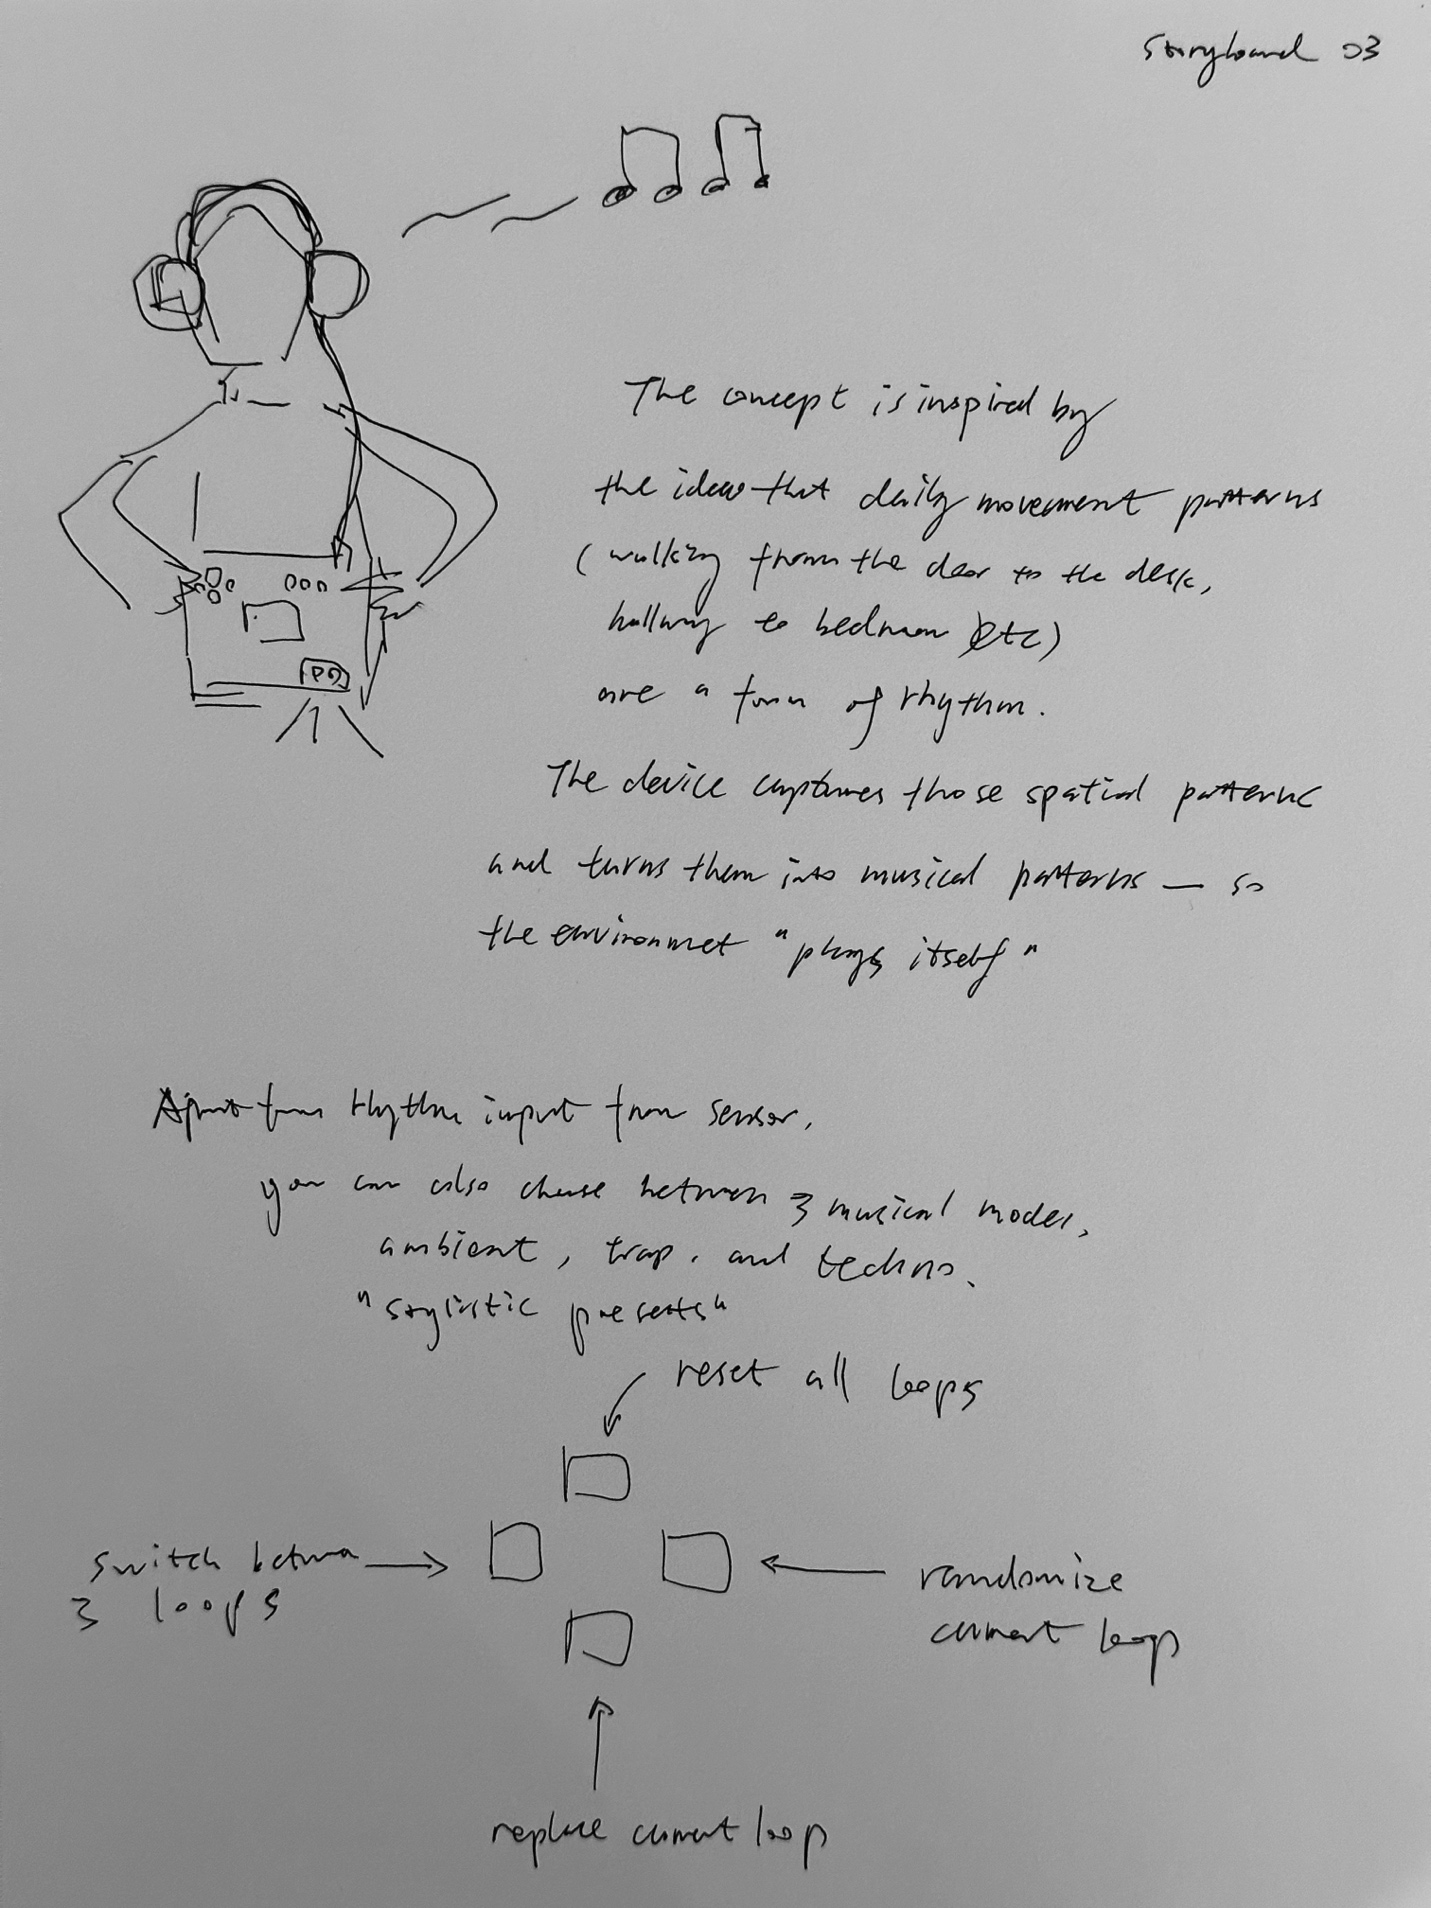 Storyboard 03
The concept is inspired by
the idea that daily movement patterns
(walking from the door to the desk,
hallway to bedroom etc)
are a form of rhythm.
The device captures those spatial patterns
and turns them into musical patterns — so
the environmet "plays itself"
Apart from rhythm input from sensor,
you can also choose between 3 musical modes,
ambient, trap, and techno.
"stylistic presets"
reset all loops
switch between
3 loops
randomize
current loop
replace current loop